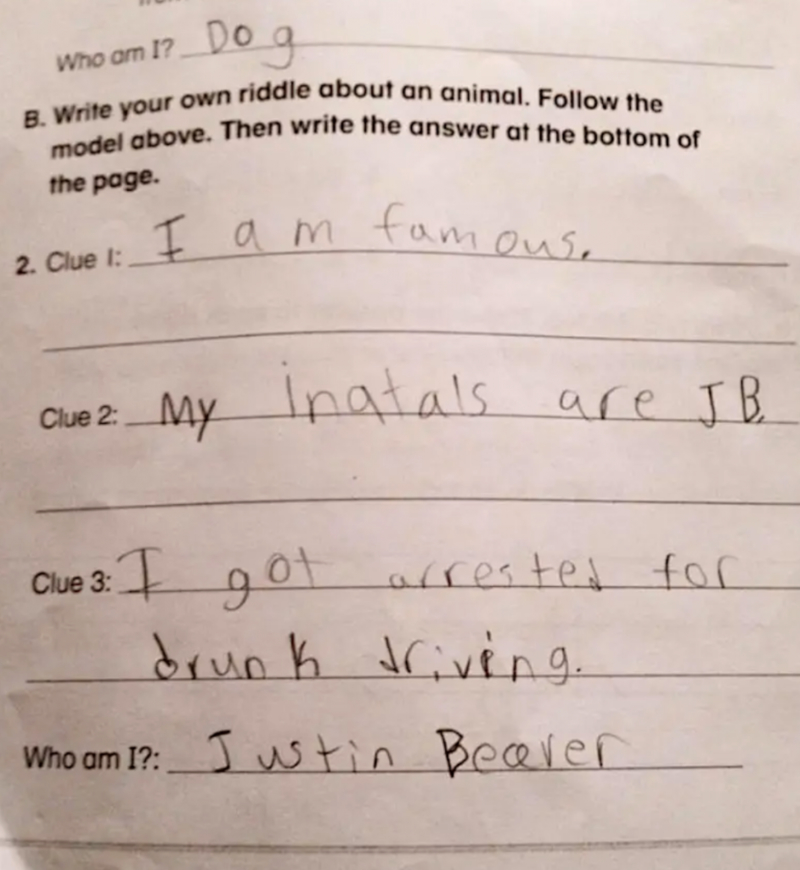 Who am I? Dog
B. Write your own riddle about an animal. Follow the
model above. Then write the answer at the bottom of
the page.
2. Clue 1: I am famous.
Clue 2: My inatals are JB.
Clue 3: I got arrested for
drunk driving.
Who am I?: Justin Beaver